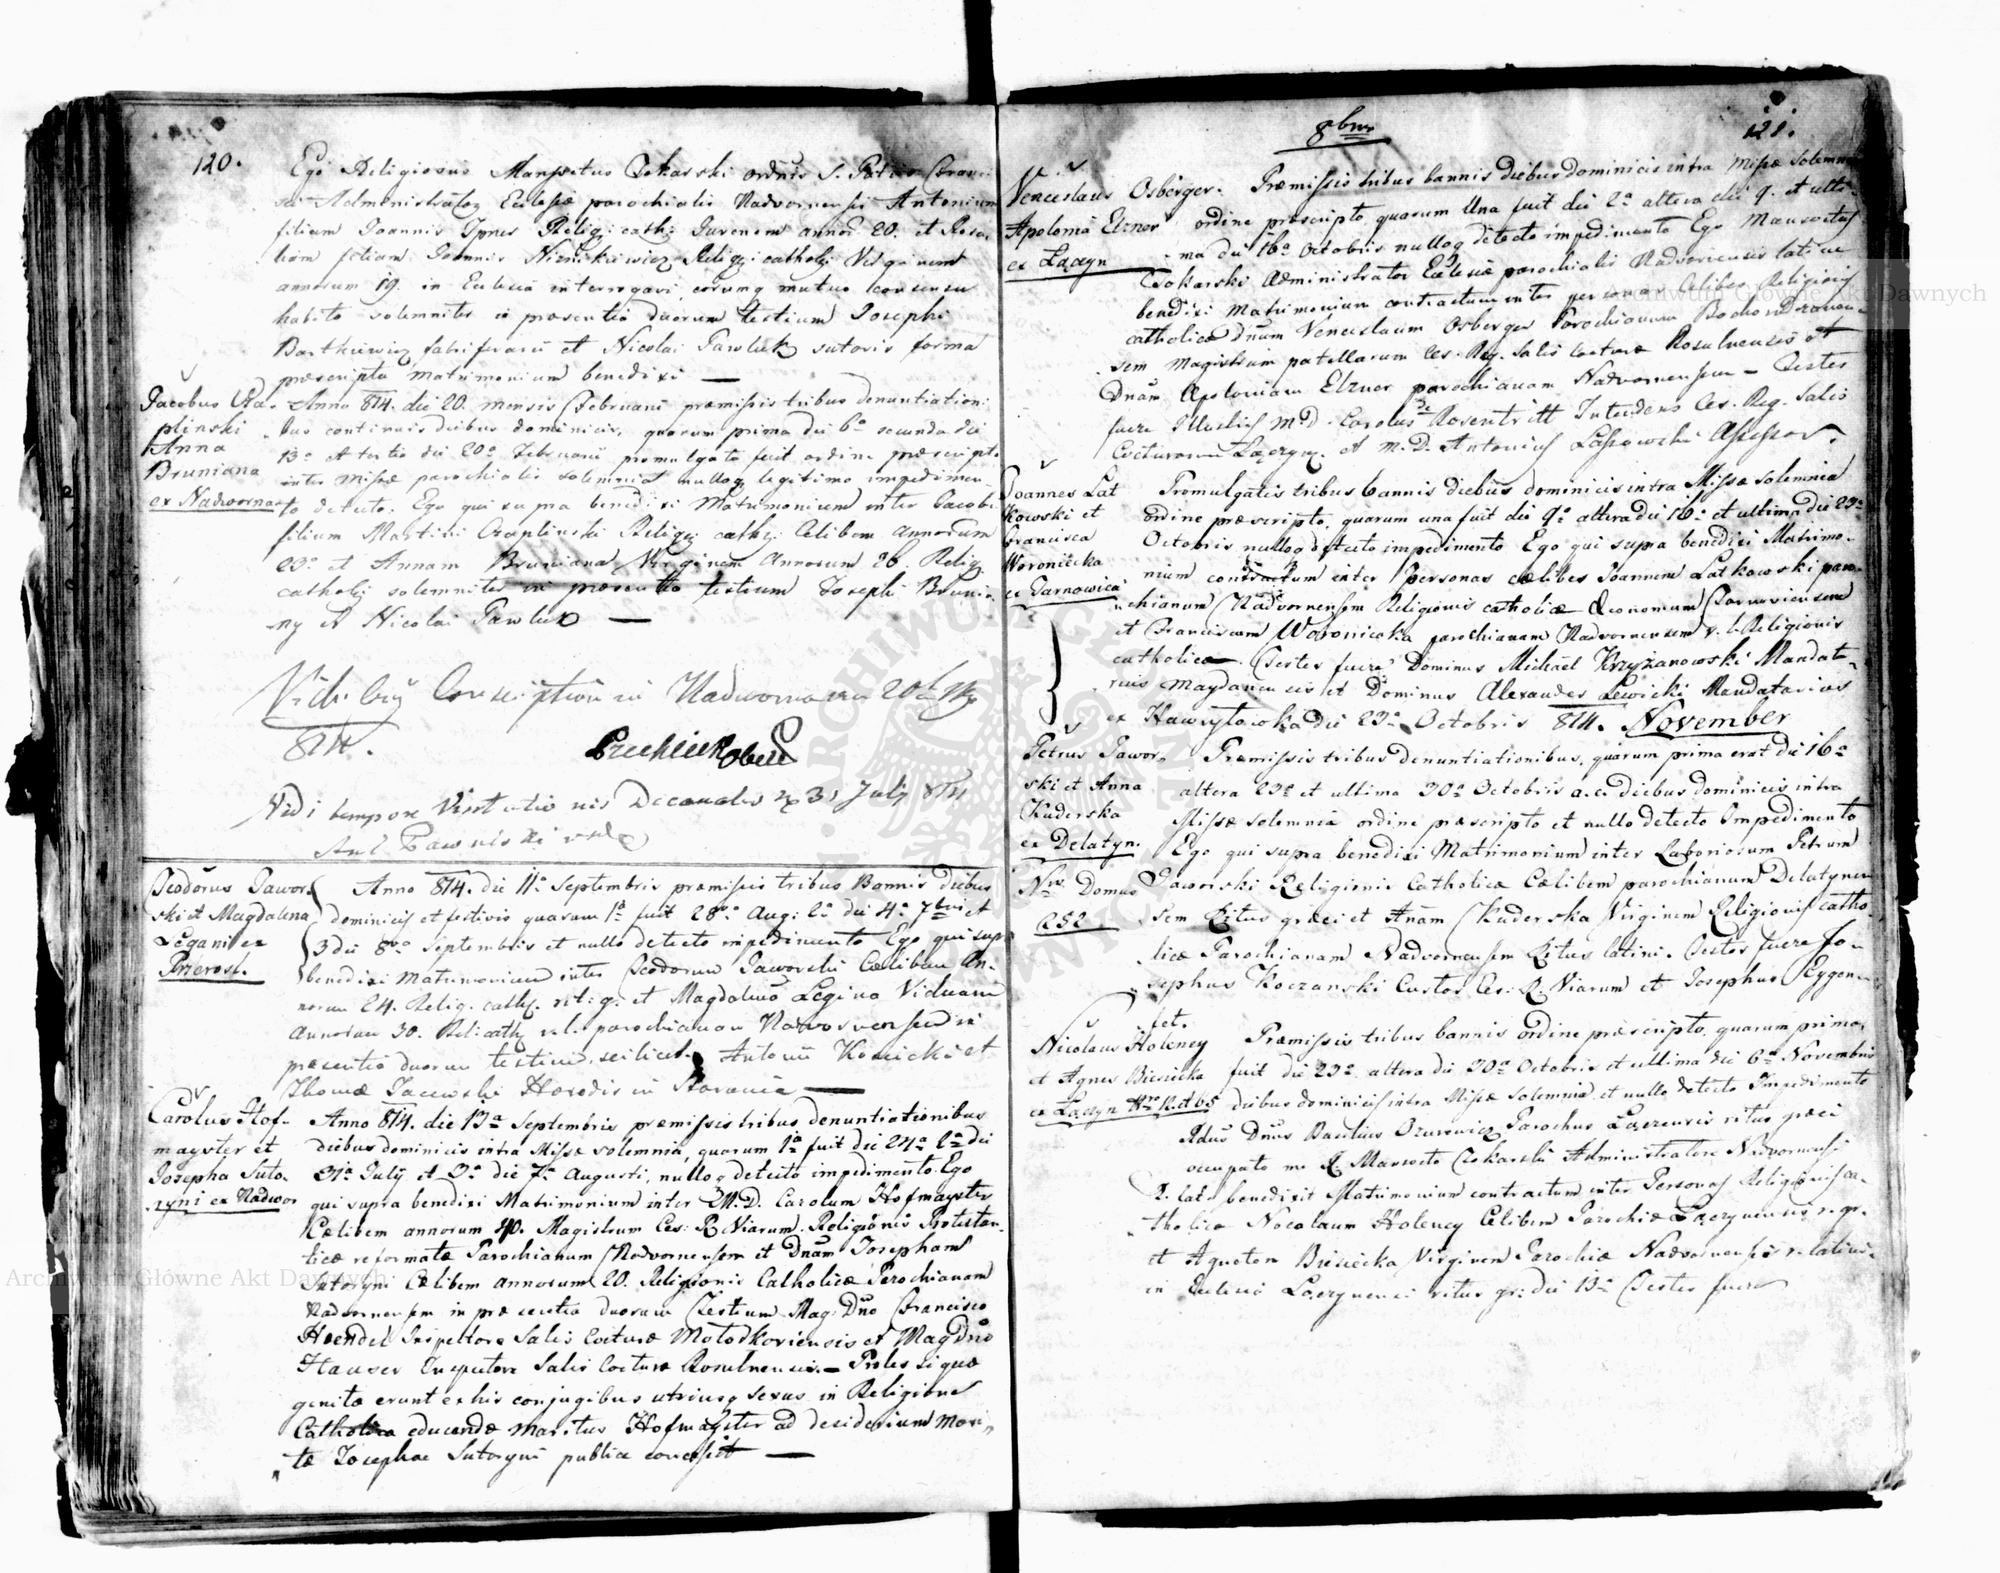 120.
Ego Religiosus Mansvetus Tokarski ordinis S. Patris Franci
sci Administrator Ecclesiæ parochialis Nadvornensis Antonium
filium Joannis Religi: cath: Juvenem annor 20. et Rosa
liam filiam Joannis Religi: cathol: Virginem
annorum 19. in Ecclesia interrogavi, eorumq mutuo consensu
habito solemniter in præsentia duorum testium Josephi
Bartkiewicz fabri ferarii et Nicolai Pawluk sutoris forma
præscripta matrimonium benedixi —
Jacobus Cza-
plinski
Anna
Bruniana
ex Nadworna
Anno 814. die 20. mensis Februarii præmissis tribus denuntiation:
bus continuis diebus dominicis, quorum prima die 6a secunda die
13a et tertia die 20a Februarii promulgata fuit ordine præscripto
inter missæ parochialis solemnia nulloq legitimo impedimen-
to detecto. Ego qui supra benedixi Matrimonium inter Jacobi
filium Martini Czaplinski Religi: cath: Celibem annorum
23. et Annam Bruniana Virginem Annorum 26. Relig:
cathol: solemniter in præsentia testium Josephi Brunia-
ny et Nicolai Pawluk —
Vidi bey Conscription in Nadworna den 20t
814.
Vidi tempore Visitationis Decanalis 31 July 814
Ant
Teodorus Jawor
ski et Magdalena
Legani ex
Przerosl.
Anno 814. die 11a Septembris præmissis tribus Bannis diebus
dominicis et festivis quarum 1a fuit 28va Aug: 2a die 4a 7bris et
3 die 8va Septembris et nullo detecto impedimento Ego qui supra
benedixi matrimonium inter Teodorum Jaworski Cælibem An-
norum 24. Relig. cath. rit: g: et Magdalena Legina Viduam
Annorum 30. Rel: cath r. l. parochianam Nadvornensem in
præsentia duorum testium, scilicet Antonii Konicki et
Thomæ Jacewski —
Carolus Hof-
mayster et
Josepha Suto-
ryni ex Nadwor
Anno 814. die 13a Septembris præmissis tribus denuntiationibus
diebus dominicis intra Missæ solemnia, quarum 1a fuit die 24a 2a die
31a July et 3a die 7a Augusti, nulloq detecto impedimento. Ego
qui supra benedixi Matrimonium inter M. D. Carolum Hofmayster
Cælibem annorum 40. Magistrum Ces: R. Viarum. Religionis Protestan-
ticæ reformatæ Parochianum Nadvornensem et Dnam Josepham
Sutoryni Cælibem annorum 20. Religionis Catholicæ Parochianam
Nadvornensem in præsentia duorum Testium Mag. Dno Francisco
Haendel Inspectore Salis Cocturæ Molodkoviensis et Mag Dno
Hauser Inspectore Salis Cocturæ Rosulnensis. — Proles si quæ
genitæ erunt ex his conjugibus utriusq sexus in Religione
Catholica educandæ maritus Hofmayster ad desiderium mari-
tæ Josephae Sutoryni publice concessit —
8bris
121.
Venceslaus Osberger.
Apolonia Elzner
ex Łączyn
Præmissis tribus bannis diebus dominicis intra Missæ Solemnia
ordine præscripto, quarum Una fuit die 2a altera die 9. et ulti-
ma die 16a Octobris nulloq detecto impedimento Ego Mansvetus
Tokarski Administrator Ecclesiæ parochialis Nadvornensis latinæ
benedixi Matrimonium contractum inter personas Celibes Religionis
catholicæ Dnum Venceslaum Osberger Parochianum
sem Magistrum patellarum Ces. Reg. Salis Cocturæ Rosulnensis et
Dnam Apoloniam Elzner parochianam Nadvornensem — Testes
fuere Illustris M. D. Carolus de Rosentritt Intendens Ces. Reg. Salis
Cocturarum Łączyn. et M. D. Antonius Lassowski Assessor.
Joannes Lat
kowski et
Francisca
Woroniecka
ex Tarnowica
Promulgatis tribus bannis diebus dominicis intra Missæ solemnia
ordine præscripto, quarum una fuit die 9a altera die 16a et ultima die 23a
Octobris nulloq detecto impedimento Ego qui supra benedixi Matrimo-
nium contractum inter personas cælibes Joannem Latkowski paro-
chianum Nadvornensem Religionis catholicæ Œconomum Tarnoviensem
et Franciscam Woroniecka parochianam Nadvornensem r. l. Religionis
catholicæ. Testes fuere Dominus Michael Krzyżanowski Mandata-
rius Maydanensis et Dominus Alexander Lewicki Mandatarius
ex Hawryłowka die 23a Octobris 814. November
Petrus Jawor-
ski et Anna
Kuderska
ex Delatyn.
Nro Domus
252
Præmissis tribus denuntiationibus, quarum prima erat die 16a
altera 23a et ultima 30a Octobris a. c. diebus dominicis intra
Missæ solemnia ordine præscripto et nullo detecto Impedimento
Ego qui supra benedixi Matrimonium inter Laboriosum Petrum
Jaworski Religionis Catholicæ Cælibem parochianum Delatynen
sem Ritus græci et Annam Kuderska Virginem Religionis catho-
licæ Parochianam Nadvornensem Ritus latini. Testes fuere Jo-
sephus Koczanski Custos Ces: R. Viarum et Josephus Eygen-
fet.
Nicolaus Holeney
et Agnes Biesiecka
ex Łączyn Nro 12. et 65
Præmissis tribus bannis ordine præscripto, quarum prima
fuit die 23a altera die 30a Octobris et ultima die 6a Novembris
diebus dominicis intra Missæ Solemnia, et nullo detecto Impedimento
Rdus Dnus Basilius Ozurewicz Parochus Łączensis ritus græci
occupato me R. Mansveto Tokarski Administratore Nadvornensi
R. lat. benedixit Matrimonium contractum inter Personas Religionis ca-
tholicæ Nocolaum Holeney Celibem Parochiæ Łączynensis r. gr.
et Agnetem Biesiecka Virginem Parochiæ Nadvornensis r. latini.
in Ecclesia Łączynensi ritus gr: die 13a Testes fuere
Archiwum Główne Akt Dawnych
Archiwum Główne Akt Dawnych